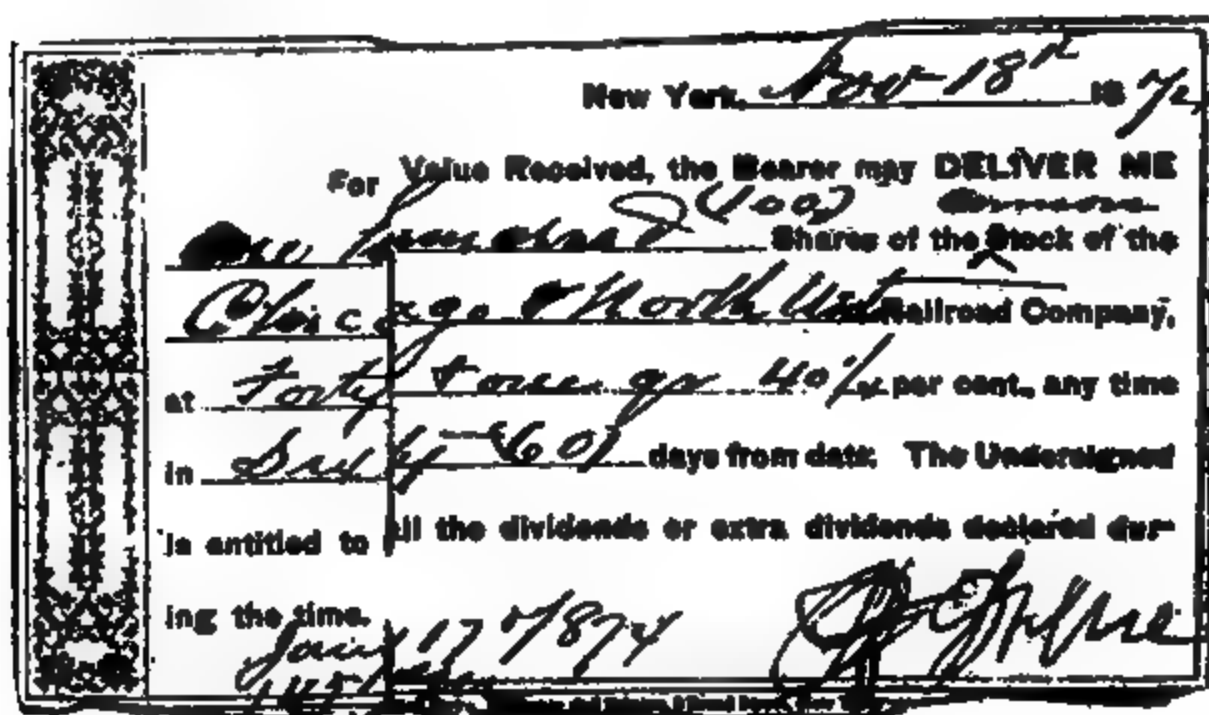 New York, Nov 18th 187
For Value Received, the Bearer may DELIVER ME
One hundred (100) Common Shares of the Stock of the
Chicago & North West Railroad Company,
at Forty 40 per cent., any time
in Sixty (60) days from date. The Undersigned
is entitled to all the dividends or extra dividends declared dur-
ing the time.
Jany 17 1874